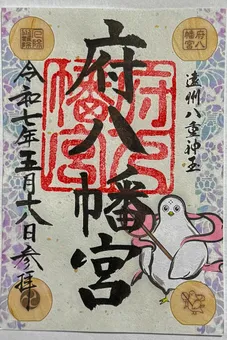 遠州八重神玉
府八幡宮
府八幡宮
令和七年五月十八日参拝
府八幡宮